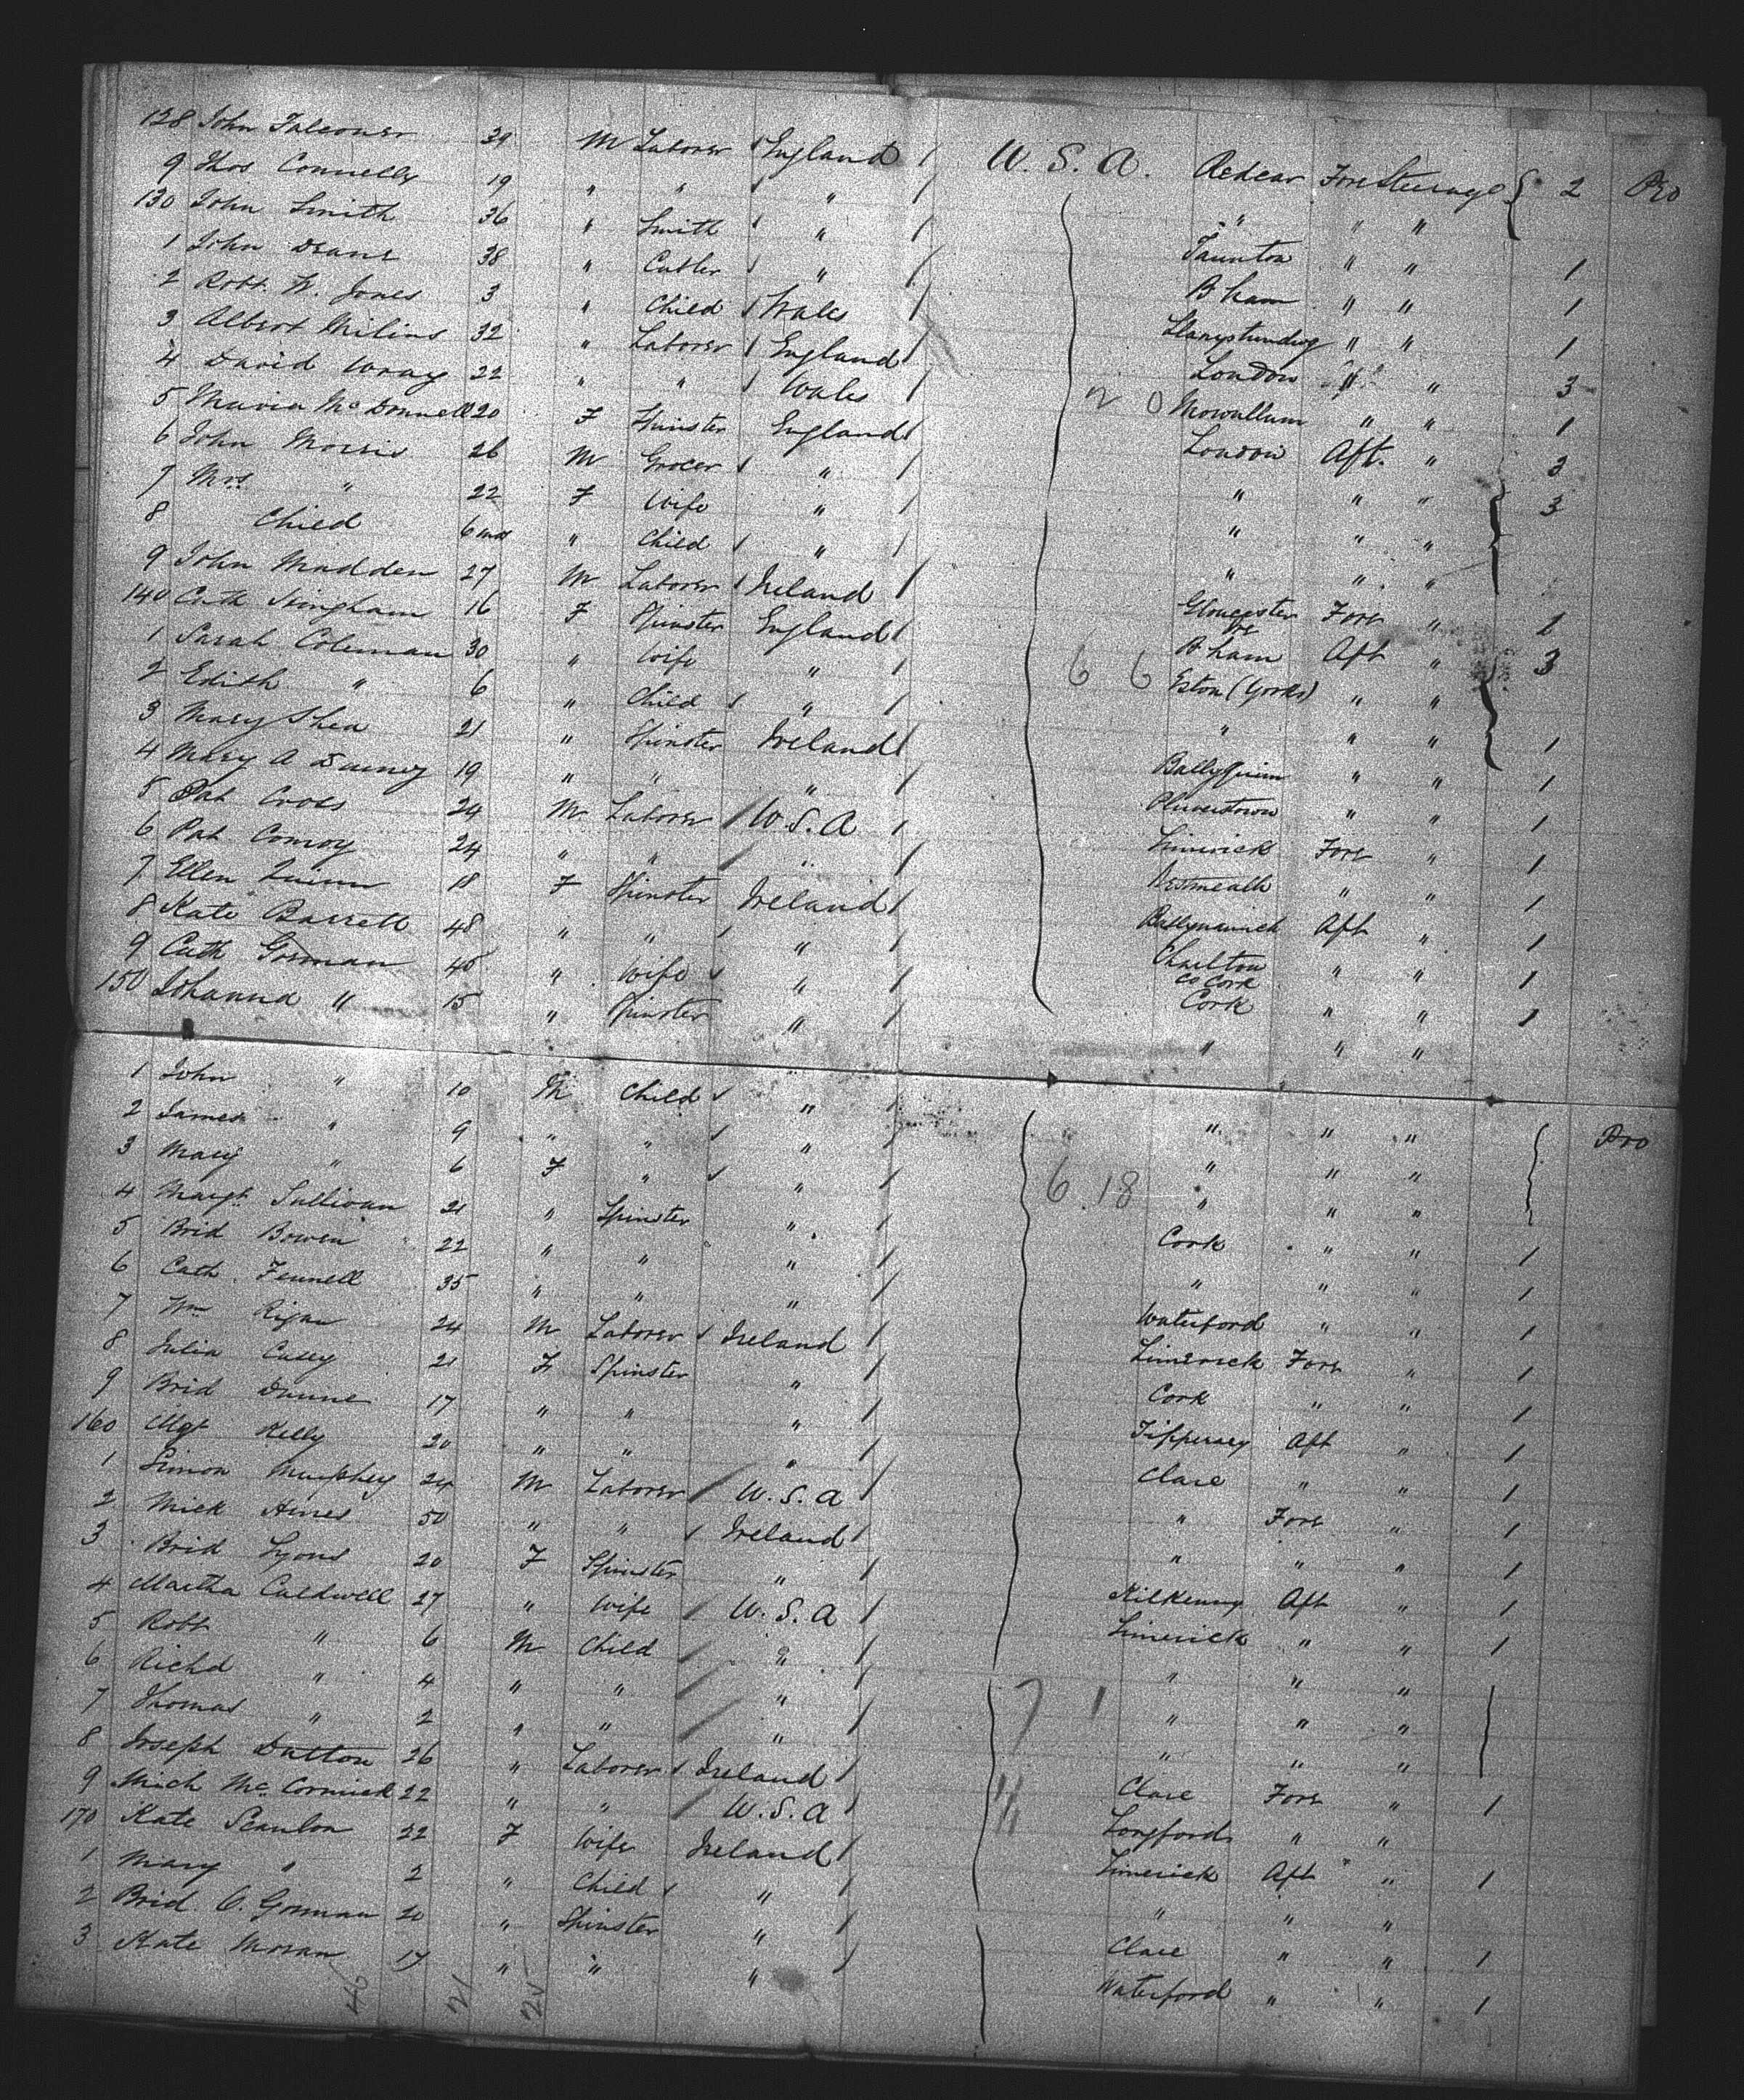 128 John Falconer 39 M Laborer England / U. S. A. Redcar Fore Steerage 2 Pro
9 Thos Connelly 19 " " " / " " "
130 John Smith 36 " Smith " / Taunton " " 1
1 John Deane 38 " Cutler " / B'ham " " 1
2 Robt. H. Jones 3 " Child Wales / " " 1
3 Albert Milins 32 " Laborer England / London " " 3
4 David Wray 22 " " Wales / " " 1
5 Maria McDonnell 20 F Spinster England / London Aft. " 3
6 John Morris 26 M Grocer " / " " " 3
7 Mrs " 22 F Wife " / " " "
8 Child 6 mos " Child " / " " "
9 John Madden 27 M Laborer Ireland / Gloucester Fore " 1
140 Cath Isingham 16 F Spinster England / B'ham Aft " 3
1 Sarah Coleman 30 " Wife " / Eston (Yorks) " "
2 Edith " 6 " Child " / " " "
3 Mary Shea 21 " Spinster Ireland / " " 1
4 Mary A 19 " " " / " " 1
5 Pat Cross 24 M Laborer U. S. A / Limerick Fore " 1
6 Pat Conroy 24 " " " / Westmeath " " 1
7 Ellen Quinn 18 F Spinster Ireland / Aft " 1
8 Kate Barrett 48 " " " / Charlton Co Cork " " 1
9 Cath Gorman 45 " Wife " / Cork " " 1
150 Johanna " 15 " Spinster " / " " "
1 John " 10 M Child " / " " " Pro
2 James " 9 " " " / " " "
3 Mary " 6 F " " / " " "
4 Margt Sullivan 21 " Spinster " / Cork " " 1
5 Brid Bowen 22 " " " / " " " 1
6 Cath. Fennell 35 " " " / Waterford " " 1
7 Wm Rijan 24 M Laborer Ireland / Limerick Fore " 1
8 Julia Casey 21 F Spinster " / Cork " " 1
9 Brid Dunne 17 " " " / Tipperary Aft " 1
160 Mgt Kelly 20 " " " / Clare " " 1
1 Simon Murphey 24 M Laborer U. S. A / " Fore " 1
2 Mick Hines 50 " " Ireland / " " " 1
3 Brid Lyons 20 F Spinster " / Kilkenny Aft " 1
4 Martha Caldwell 27 " Wife U. S. A / Limerick " " 1
5 Robt " 6 M Child " / " " "
6 Richd " 4 " " " / " " "
7 Thomas " 2 " " " / " " "
8 Joseph Dutton 26 " Laborer Ireland / Clare Fore " 1
9 Mich McCormick 22 " " U. S. A / Longford " "
170 Kate Scanlon 22 F Wife Ireland / Limerick Aft " 1
1 Mary " 2 " Child " / " " "
2 Brid. O. Gorman 20 " Spinster " / Clare " " 1
3 Kate Moran 17 " " " / Waterford " " 1
46 21 25